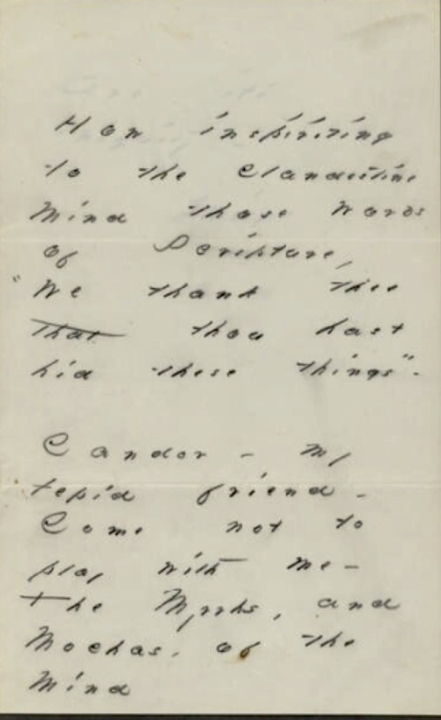 How inspiriting
to the Clandestine
Mind those words
of Scripture,
"We thank Thee
that thou hast
hid these things".
Candor – my
tepid friend –
Come not to
play with me –
The Myrrhs, and
Mochas, of the
Mind